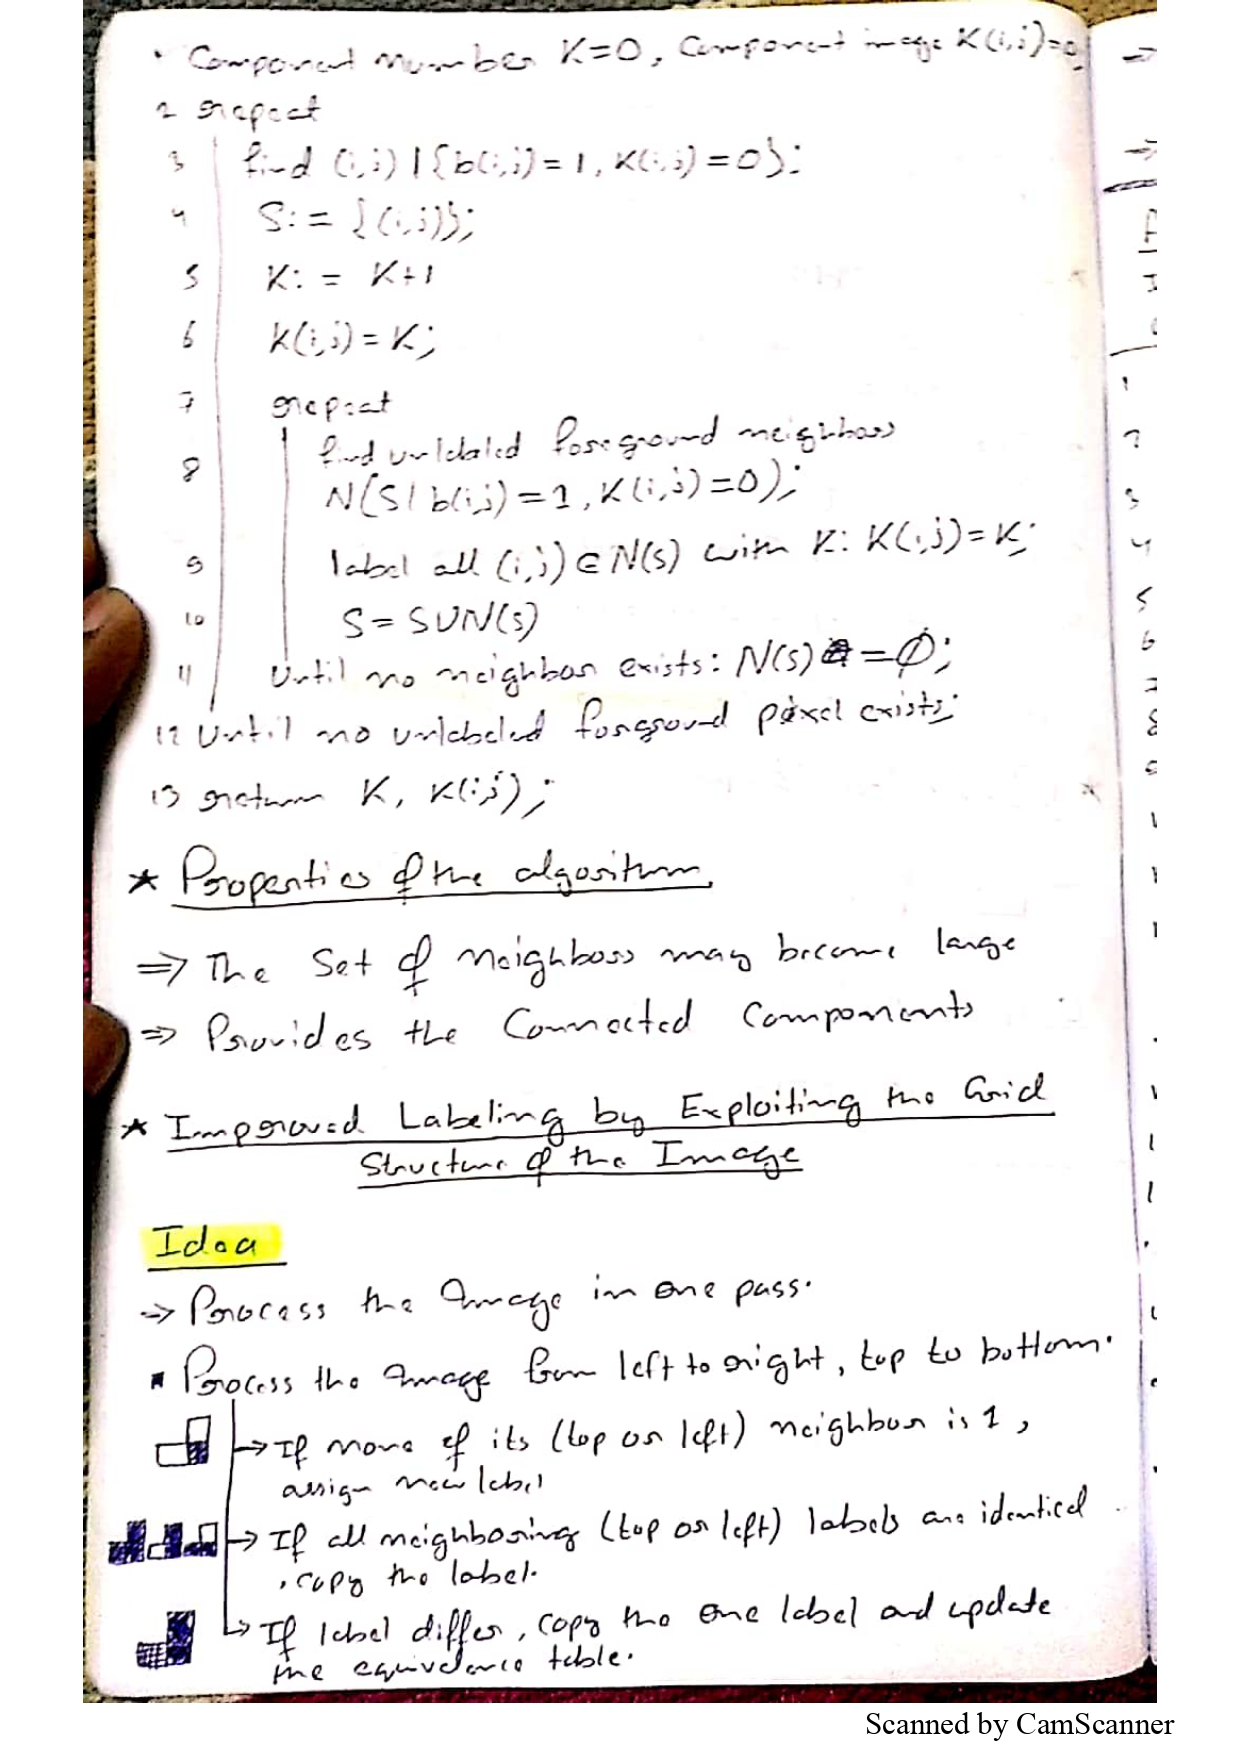 1 Component number K=0, Component image K(i,j)=0;
2 repeat
3 find (i,j) | {b(i,j)=1, K(i,j)=0};
4 S:= {(i,j)};
5 K: = K+1
6 k(i,j) = K;
7 repeat
8 find unlabled foreground neighbors
N(S | b(i,j) = 1, K(i,j)=0);
9 label all (i,j) ∈ N(s) with K: K(i,j) = K;
10 S = S∪N(s)
11 Until no neighbor exists: N(s) = ∅;
12 Until no unlabeled foreground pixel exists;
13 return K, K(i,j);
* Properties of the algorithm
⇒ The Set of neighbors may become large
⇒ Provides the Connected Components
* Improved Labeling by Exploiting the Grid
Structure of the Image
Idea
→ Process the Image in one pass.
Process the Image from left to right, top to bottom.
→ If none of its (top or left) neighbor is 1,
assign new label
→ If all neighboring (top or left) labels are identical
, copy the label.
→ If label differ, copy the one label and update
the equivalence table.
Scanned by CamScanner